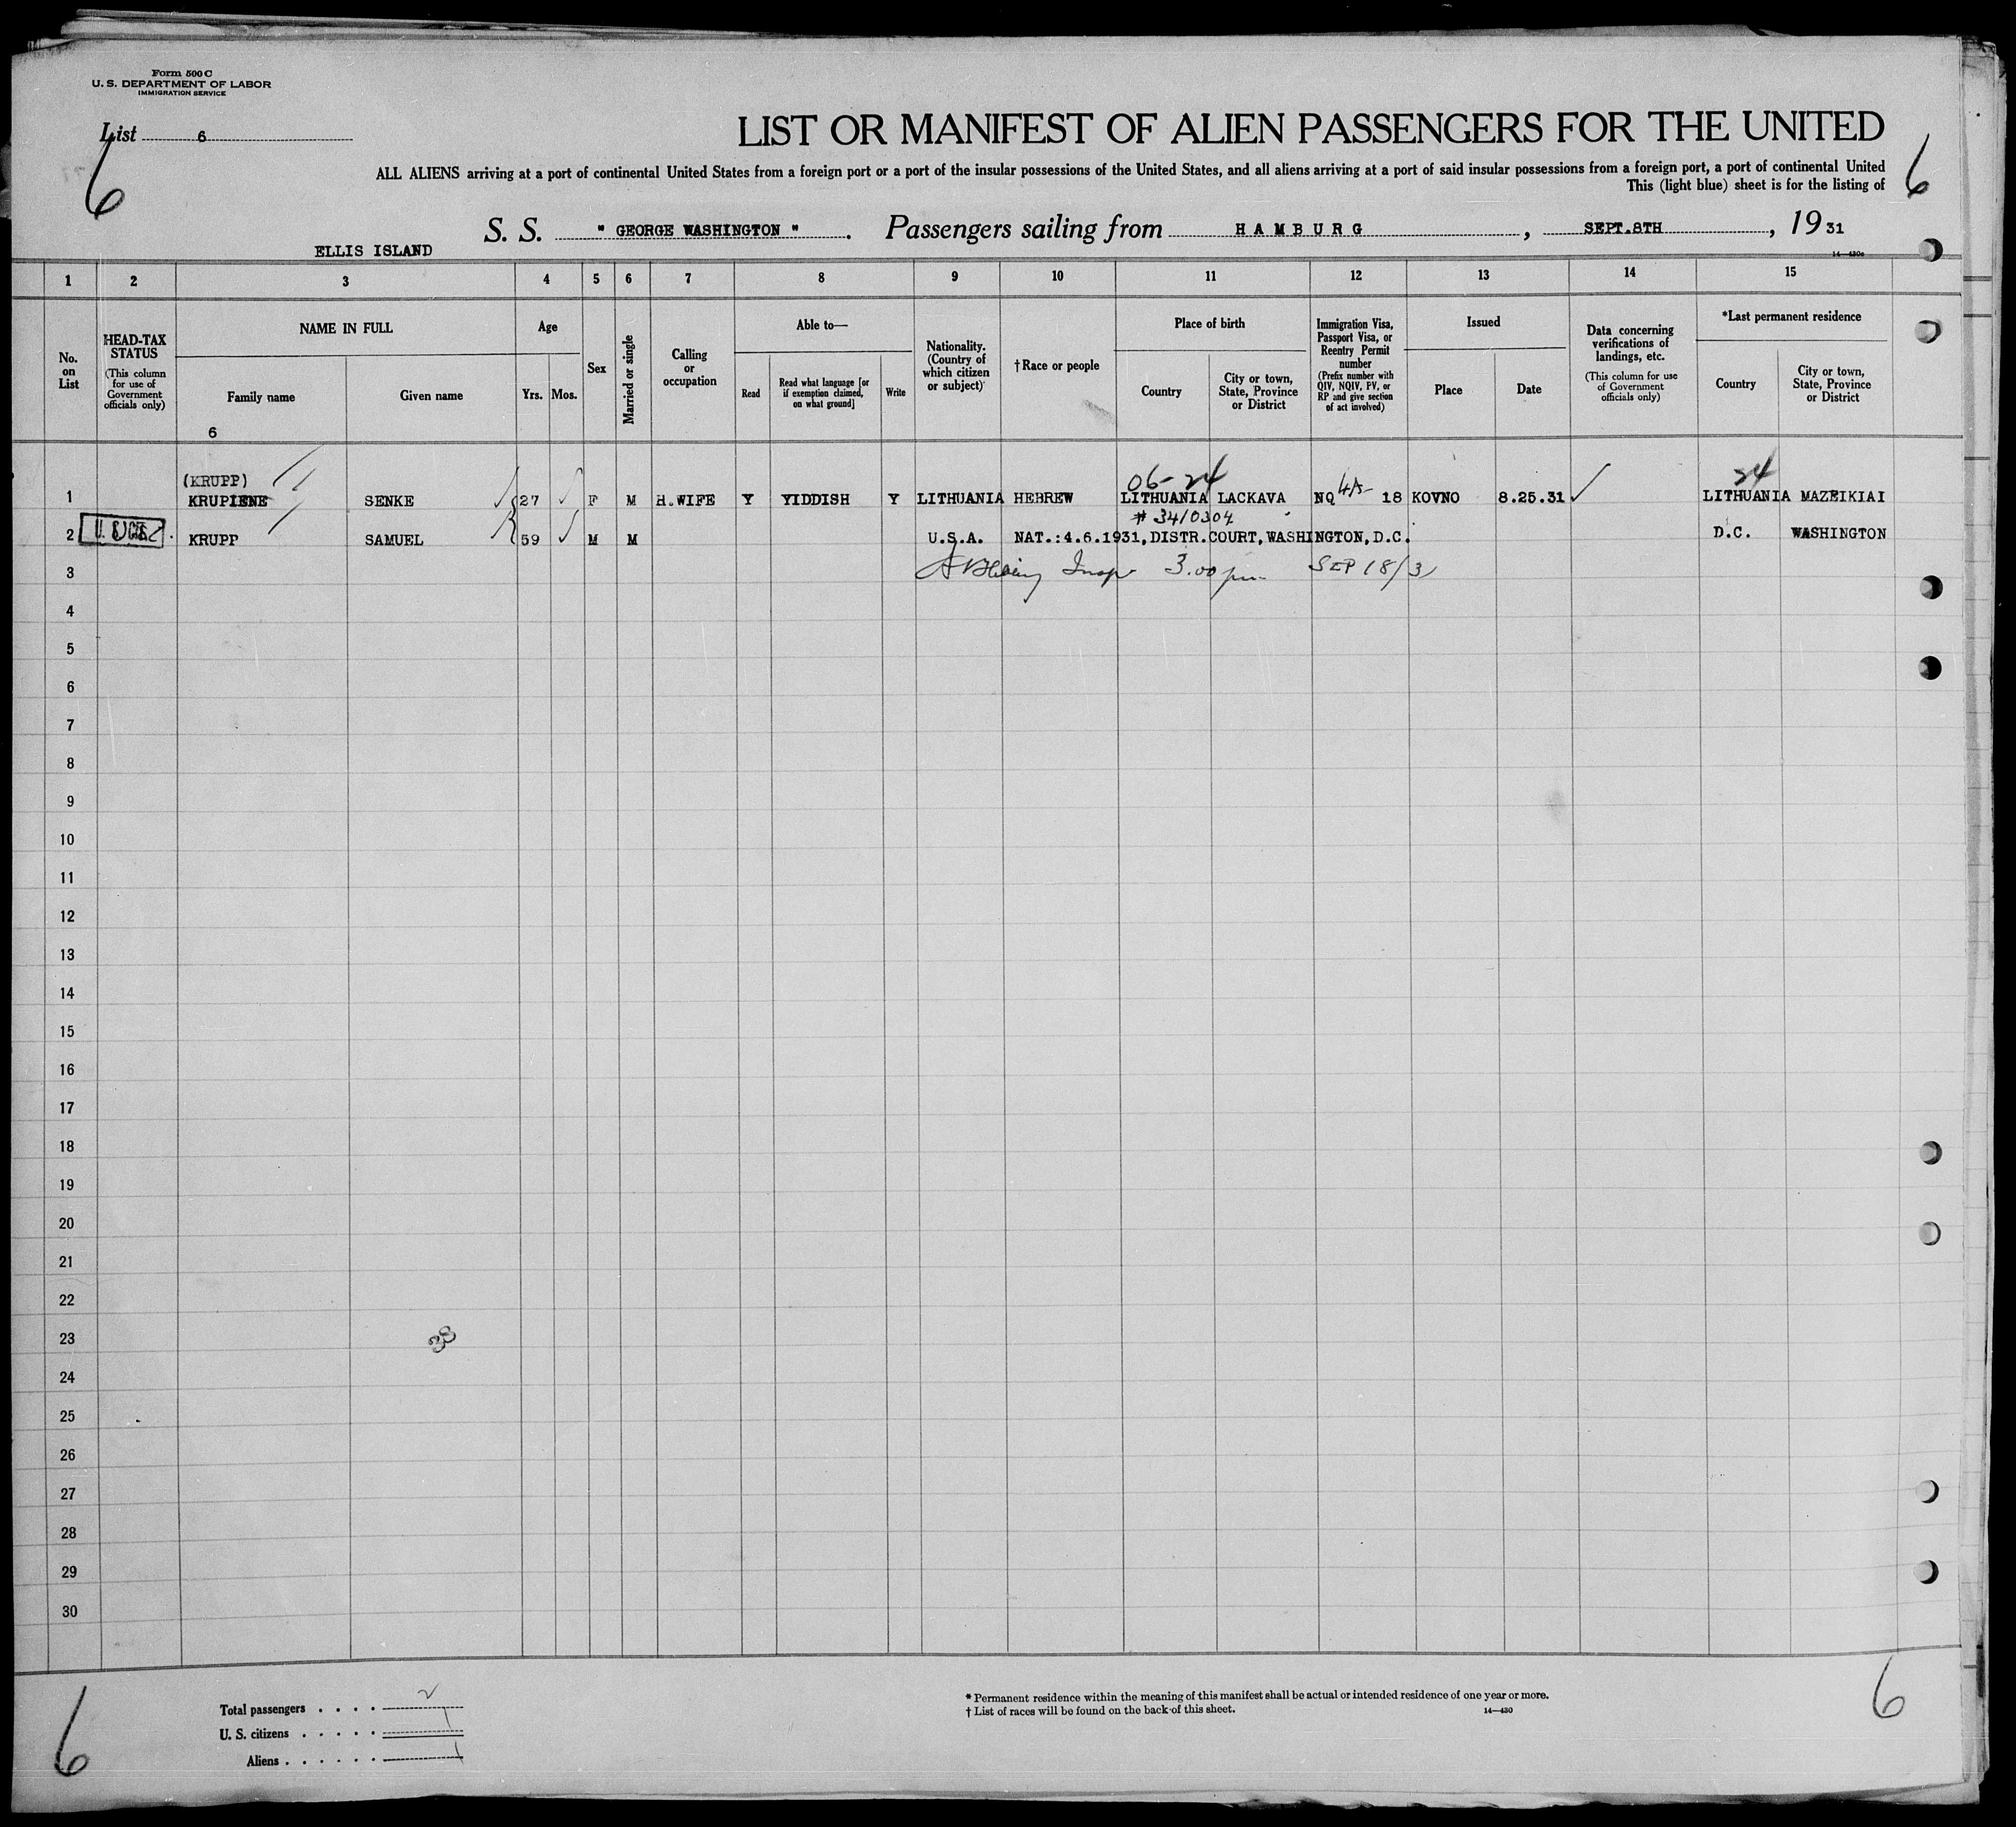 Form 500 C
U. S. DEPARTMENT OF LABOR
IMMIGRATION SERVICE
List 6
6
6
LIST OR MANIFEST OF ALIEN PASSENGERS FOR THE UNITED
ALL ALIENS arriving at a port of continental United States from a foreign port or a port of the insular possessions of the United States, and all aliens arriving at a port of said insular possessions from a foreign port, a port of continental United
This (light blue) sheet is for the listing of
S. S. " GEORGE WASHINGTON " . Passengers sailing from HAMBURG , SEPT.8TH , 19 31
ELLIS ISLAND
1 2 3 4 5 6 7 8 9 10 11 12 13 14 15
No. on List
HEAD-TAX STATUS
(This column for use of Government officials only)
NAME IN FULL
Family name
Given name
6
Age
Yrs. Mos.
Sex
Married or single
Calling or occupation
Able to—
Read
Read what language [or if exemption claimed, on what ground]
Write
Nationality. (Country of which citizen or subject)
†Race or people
Place of birth
Country
City or town, State, Province or District
Immigration Visa, Passport Visa, or Reentry Permit number
(Prefix number with QIV, NQIV, PV, or RP and give section of act involved)
Issued
Place
Date
Data concerning verifications of landings, etc.
(This column for use of Government officials only)
*Last permanent residence
Country
City or town, State, Province or District
(KRUPP) 06-24 24
1 KRUPIENE SENKE 27 F M H.WIFE Y YIDDISH Y LITHUANIA HEBREW LITHUANIA LACKAVA NQ 18 KOVNO 8.25.31 LITHUANIA MAZEIKIAI
# 3410304
2 KRUPP SAMUEL 59 M M U.S.A. NAT.:4.6.1931,DISTR.COURT,WASHINGTON,D.C. D.C. WASHINGTON
3 Insp 3.00 pm SEP 18/31
4
5
6
7
8
9
10
11
12
13
14
15
16
17
18
19
20
21
22
23
24
25
26
27
28
29
30
Total passengers . . . . 2
U. S. citizens . . . . . 1
Aliens . . . . . . 1
* Permanent residence within the meaning of this manifest shall be actual or intended residence of one year or more.
† List of races will be found on the back of this sheet.
14—430
6
6